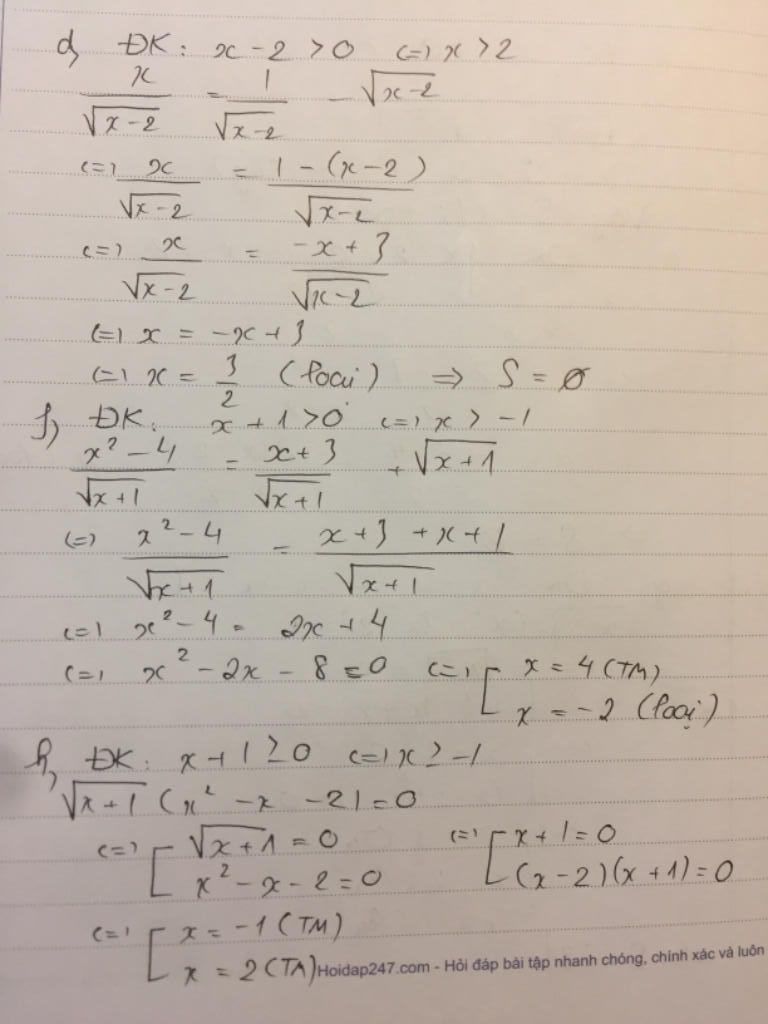 d, ĐK: x - 2 > 0 <=> x > 2
x/√(x-2) = 1/√(x-2) - √(x-2)
<=> x/√(x-2) = (1 - (x-2))/√(x-2)
<=> x/√(x-2) = (-x + 3)/√(x-2)
<=> x = -x + 3
<=> x = 3/2 (loại) => S = ∅
f, ĐK: x + 1 > 0 <=> x > -1
(x² - 4)/√(x+1) = (x+3)/√(x+1) + √(x+1)
<=> (x² - 4)/√(x+1) = (x + 3 + x + 1)/√(x+1)
<=> x² - 4 = 2x + 4
<=> x² - 2x - 8 = 0 <=> [ x = 4 (TM)
x = -2 (loại)
h, ĐK: x + 1 ≥ 0 <=> x ≥ -1
√(x+1) (x² - x - 2) = 0
<=> [ √(x+1) = 0 <=> [ x + 1 = 0
x² - x - 2 = 0 (x - 2)(x + 1) = 0
<=> [ x = -1 (TM)
x = 2 (TM)
Hoidap247.com - Hỏi đáp bài tập nhanh chóng, chính xác và luôn